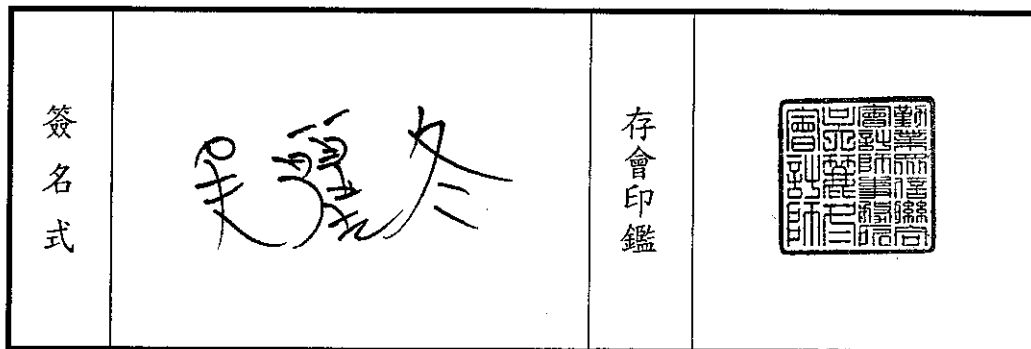 簽名式
吳麗冬
存會印鑑
勤業眾信聯合
會計師事務所
吳麗冬
會計師